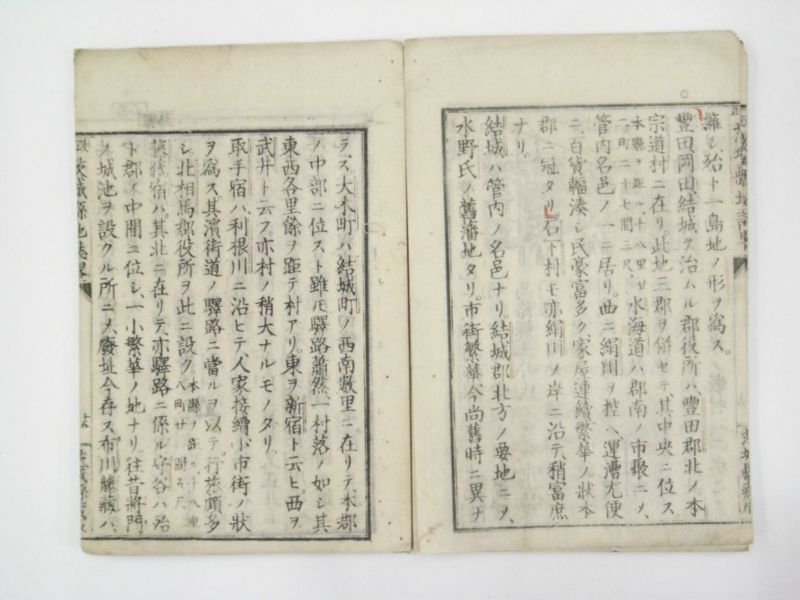 擁シ、殆ト一島地ノ形ヲ爲ス。
豐田、岡田、結城ヲ治ムル郡役所ハ、豐田郡北ノ本
宗道村ニ在リ、此地三郡ヲ併セテ其中央ニ位ス
本縣ヲ距ル十八里
二町二十七間三尺 水海道ハ、郡南ノ市聚ニメ、
管内名邑ノ一ニ居リ。西ニ絹川ヲ控ヘ運漕尤便
ニ、百貨輻湊シ民豪富多ク、家屋連續繁華ノ狀本
郡ニ冠タリ。石下村モ亦絹川ノ岸ニ沿テ、稍富庶
ナリ。
結城ハ管内ノ名邑ナリ。結城郡北方ノ要地ニメ、
水野氏ノ舊藩地タリ。市街繁華、今尚舊時ニ異ナ
ラス、大木町ハ結城町ノ西南數里ニ在リテ、本郡
ノ中部ニ位スト雖モ、驛路蕭然、一村落ノ如シ其
東西各里餘ヲ距テ村アリ。東ヲ新宿ト云ヒ。西ヲ
武井ト云フ、亦村ノ稍大ナルモノタリ。
取手宿ハ利根川ニ沿ヒテ、人家接續小市街ノ狀
ヲ爲ス其濱街道ノ驛路ニ當ルヲ以テ、行旅頗多
シ北相馬郡役所ヲ此ニ設ク 本縣ヲ距ル十八里
宿ハ其北ニ在リテ、亦驛路ニ係ル、守谷ハ治
ト郡ノ中間ニ位シ、一小繁華ノ地ナリ。往昔將門
ノ城池ヲ設クル所ニメ、廢址今存ス布川、藤藏ハ、
茨城縣地誌畧
十五